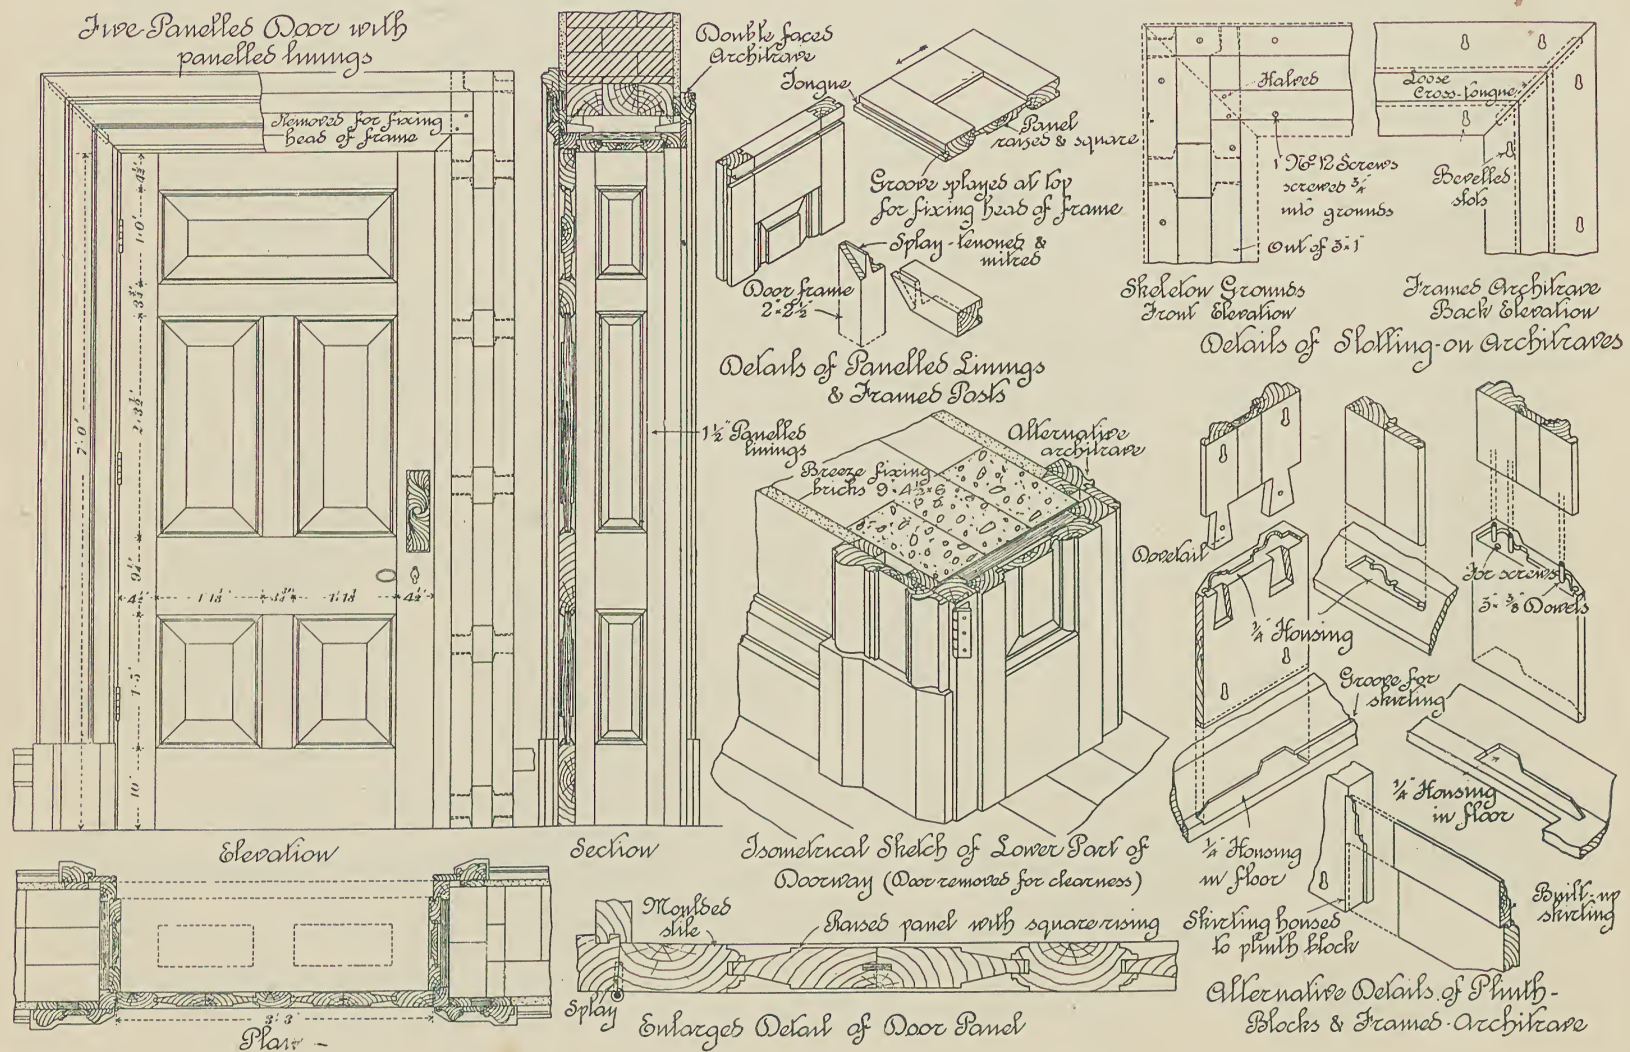 Five-Panelled Door with
panelled linings
Removed for fixing
head of frame
7'.0"
4½"
1'.0"
3¾"
2'.3½"
9¼"
1'.5"
10"
4½"
1'1⅛"
3¾"
1'.1⅛
4½"
Elevation
3'.3"
Plan -
Section
Double faced
Architrave
1½" Panelled
linings
Tongue
Panel
raised & square
Groove splayed at top
for fixing head of frame
Splay-tenoned &
mitred
Door frame
2"×2½"
Details of Panelled Linings
& Framed Posts
Halved
1" Nº 12 Screws
screwed ¾"
into grounds
Out of 3"×1"
Skeleton Grounds
Front Elevation
Loose
Cross-tongue
Bevelled
slots
Framed Architrave
Back Elevation
Details of Slotting-on Architraves
Alternative
architrave
Breeze fixing
bricks 9×4½×6
Isometrical Sketch of Lower Part of
Doorway (Door removed for clearness)
Dovetail
¼" Housing
For screws
3-⅜" Dowels
Groove for
skirting
¼" Housing
in floor
¼" Housing
in floor
Skirting housed
to plinth block
Built-up
skirting
Alternative Details of Plinth-
Blocks & Framed-Architrave
Moulded
stile
Raised panel with square rising
Splay
Enlarged Detail of Door Panel